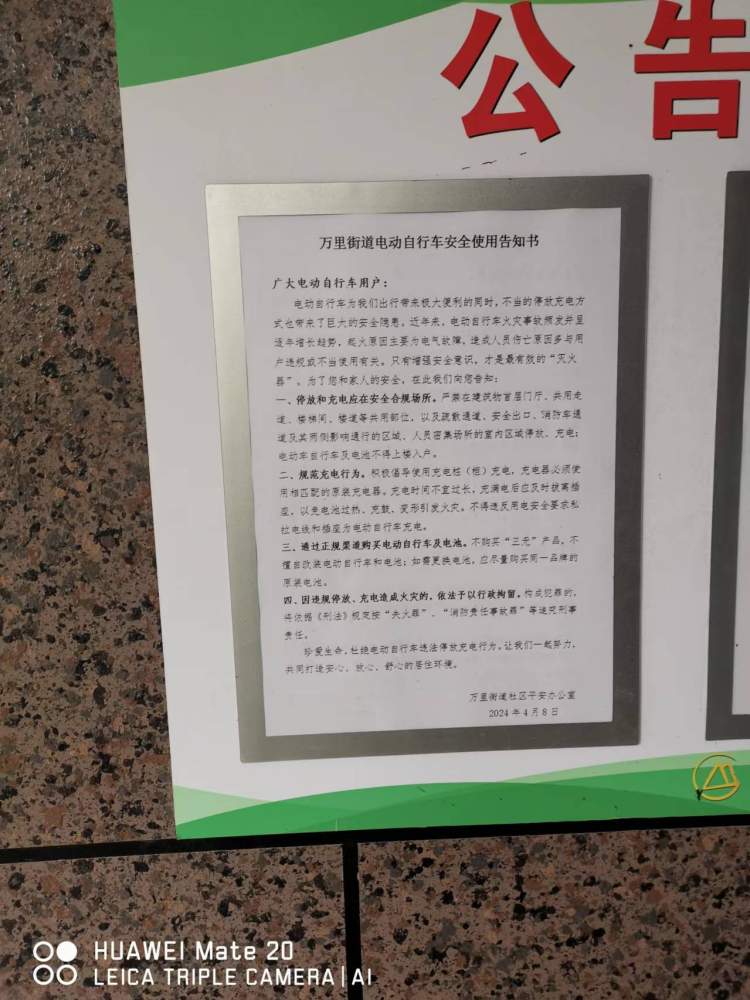 公告
万里街道电动自行车安全使用告知书
广大电动自行车用户：
电动自行车为我们出行带来极大便利的同时，不当的停放充电方
式也带来了巨大的安全隐患。近年来，电动自行车火灾事故频发并呈
逐年增长趋势，起火原因主要为电气故障，造成人员伤亡原因多与用
户违规或不当使用有关。只有增强安全意识，才是最有效的“灭火
器”。为了您和家人的安全，在此我们向您告知：
一、停放和充电应在安全合规场所。严禁在建筑物首层门厅、共用走
道、楼梯间、楼道等共用部位，以及疏散通道、安全出口、消防车通
道及其两侧影响通行的区域、人员密集场所的室内区域停放、充电；
电动车自行车及电池不得上楼入户。
二、规范充电行为。积极倡导使用充电桩（柜）充电，充电器必须使
用相匹配的原装充电器。充电时间不宜过长，充满电后应及时拔离插
座，以免电池过热、充鼓、变形引发火灾。不得违反用电安全要求私
拉电线和插座为电动自行车充电。
三、通过正规渠道购买电动自行车及电池。不购买“三无”产品，不
擅自改装电动自行车和电池；如需更换电池，应尽量购买同一品牌的
原装电池。
四、因违规停放、充电造成火灾的，依法予以行政拘留。构成犯罪的，
将依据《刑法》规定按“失火罪”、“消防责任事故罪”等追究刑事
责任。
珍爱生命，杜绝电动自行车违法停放充电行为。让我们一起努力，
共同打造安心、放心、舒心的居住环境。
万里街道社区平安办公室
2024年4月8日
HUAWEI Mate 20
LEICA TRIPLE CAMERA | AI